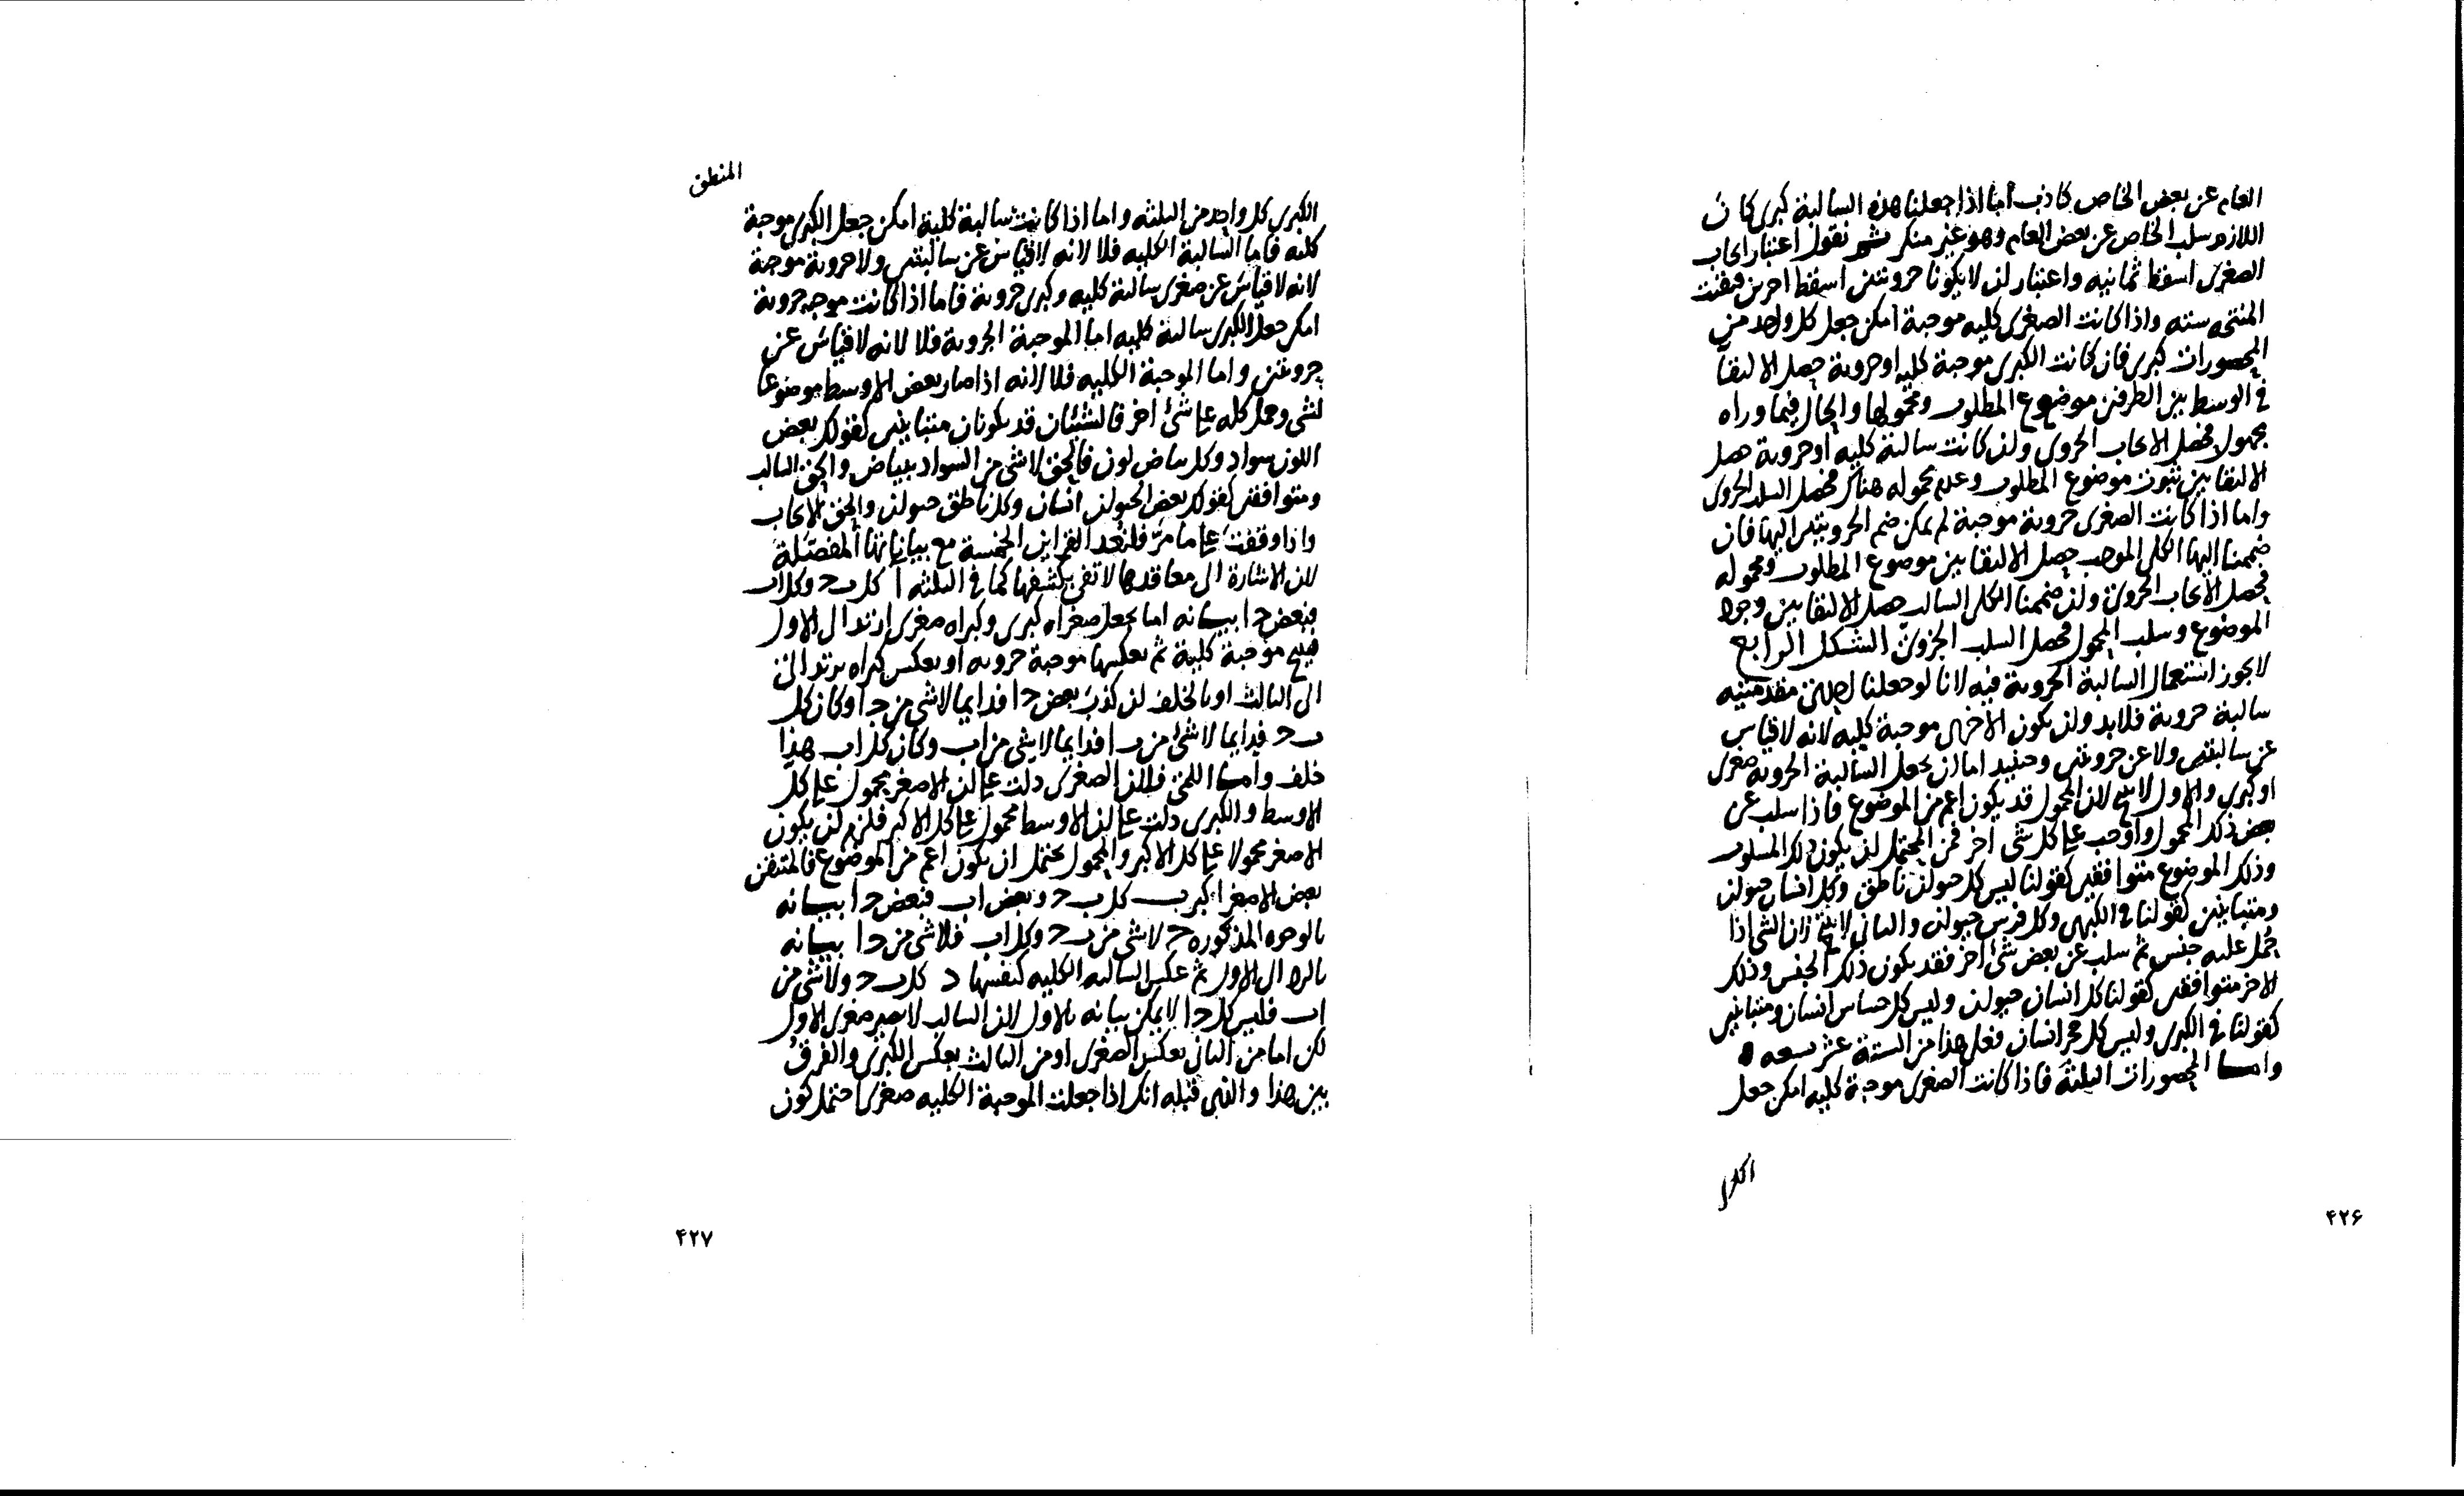 العام عن بعض الخاص كاذب اما اذا جعلنا هذه السالبة كبرى كان
اللازم سلب الخاص عن بعض العام وهو غير منكر ثم نقول اعتبار ايجاب
الصغرى اسقط ثمانيه واعتبار ان لا يكونا جزويتين اسقط اخرين فبقيت
المنتجه سته واذا كانت الصغرى كليه موجبة امكن جعل كل واحد من
المحصورات كبرى فان كانت الكبرى موجبة كليه او جزوية حصل الالتقآ
فى الوسط بين الطرفين موضوع المطلوب ومحمولها والحال فيما وراه
مجهول فحصل الايجاب الجزوى وان كانت سالبة كليه او جزوية حصل
الالتقا بين ثبوت موضوع المطلوب وعدم محموله هناك فحصل السلب الجزوى
واما اذا كانت الصغرى جزوية موجبة لم يمكن ضم الجزويتين اليها فان
ضممنا اليها الكلى الموجب حصل الالتقا بين موضوع المطلوب ومحموله
فحصل الايجاب الجزوى وان ضممنا الكلى السالب حصل الالتقا بين وجود
الموضوع وسلب المحمول فحصل السلب الجزوى الشكل الرابع
لا يجوز استعمال السالبة الجزوية فيه لانا لو جعلنا احدى مقدمتيه
سالبة جزوية فلابد وان يكون الاخرى موجبة كليه لانه لا قياس
عن سالبتين ولا عن جزويتين وحينيد اما ان نجعل السالبة الجزويه صغرى
او كبرى والاول لا ينتج لان المحمول قد يكون اعم من الموضوع فاذا سلب عن
بعض ذلك المحمول واوجب على كل شى اخر فمن المحتمل ان يكون ذلك المسلوب
وذلك الموضوع متوافقين كقولنا ليس كل حيوان ناطق وكل انسان حيوان
ومتباينين كقولنا فى الكبرى وكل فرس حيوان والثانى لا ينتج لان الشى اذا
حُمل عليه جنس ثم سلب عن بعض شئ اخر فقد يكون ذلك الجنس وذلك
الاخر متوافقين كقولنا كل انسان حيوان وليس كل حساس انسان ومتباينين
كقولنا فى الكبرى وليس كل حجر انسان فعلى هذا من الستة عشر سبعه ه
واما المحصورات الثلثة فاذا كانت الصغرى موجبة كليه امكن جعل
الكبرى
۴۲۶
المنطق
الكبرى كل واحد من الثلثه واما اذا كانت سالبة كلية امكن جعل الكبرى موجبة
كليه فاما السالبة الكليه فلا لانه لا قياس عن سالبتين ولا جزوية موجبة
لانه لا قياس عن صغرى سالبة كليه وكبرى جزوية فاما اذا كانت موجبه جزوية
امكن جعل الكبرى سالبة كليه اما الموجبة الجزوية فلا لانه لا قياس عن
جزويتين واما الموجبة الكليه فلا لانه اذا صار بعض الاوسط موضوعا
لشى وحمل كله على شئ اخر فالشيئان قد يكونان متباينين كقولك بعض
اللون سواد وكل بياض لون فالحق لا شى من السواد ببياض والحق السالب
ومتوافقين كقولك بعض الحيوان انسان وكل ناطق حيوان والحق الايجاب
واذا وقفت على ما مرّ فلنعد القراين الخمسة مع بياناتها المفصّلة
لان الاشارة الى معاقدها لا تفى بكشفها كما فى الثلثه ا كل ب ج وكل ا ب
فبعض ج ا بيانه اما بجعل صغراه كبرى وكبراه صغرى ليرتد الى الاول
فينتج موجبة كلية ثم بعكسها موجبة جزويه او بعكس كبراه ليرتد
الى الثالث او بالخلف ان كذب بعض ج ا فدايما لا شى من ج ا وكان كل
ب ج فدايما لا شئ من ب ا فدايما لا شى من ا ب وكان كل ا ب هذا
خلف واما اللمى فلان الصغرى دلت على ان الاصغر محمول على كل
الاوسط والكبرى دلت على ان الاوسط محمول على كل الاكبر فلزم ان يكون
الاصغر محمولا على كل الاكبر والمحمول يحتمل ان يكون اعم من الموضوع فالمتيقن
بعض الاصغر اكبر ب كل ب ج وبعض ا ب فبعض ج ا بيانه
بالوجوه المذكوره ج لا شى من ب ج وكل ا ب فلا شى من ج ا بيانه
بالرد الى الاول ثم عكس السالبه الكليه كنفسها د كل ب ج ولا شى من
ا ب فليس كل ج ا لا يمكن بيانه بالاول لان السالب لا يصير صغرى الاول
لكن اما من الثانى بعكس الصغرى او من الثالث بعكس الكبرى والفرق
بين هذا والذى قبله انك اذا جعلت الموجبة الكليه صغرى احتمل كون
۴۲۷